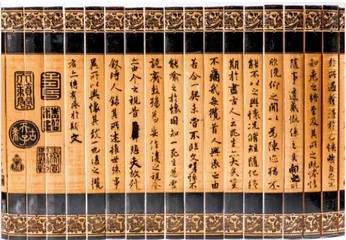 於所遇蹔得於己快然自足不
知老之將至及其所之既惓情
隨事遷感慨係之矣向之所
欣俛仰之間以為陳迹猶不
能不以之興懷況脩短隨化終
期於盡古人云死生亦大矣豈
不痛哉每攬昔人興感之由
若合一契未嘗不臨文嗟悼不
能喻之於懷固知一死生為虛
誕齊彭殤為妄作後之視今
亦由今之視昔悲夫故列
敘時人錄其所述雖世殊事
異所以興懷其致一也後之攬
者亦將有感於斯文